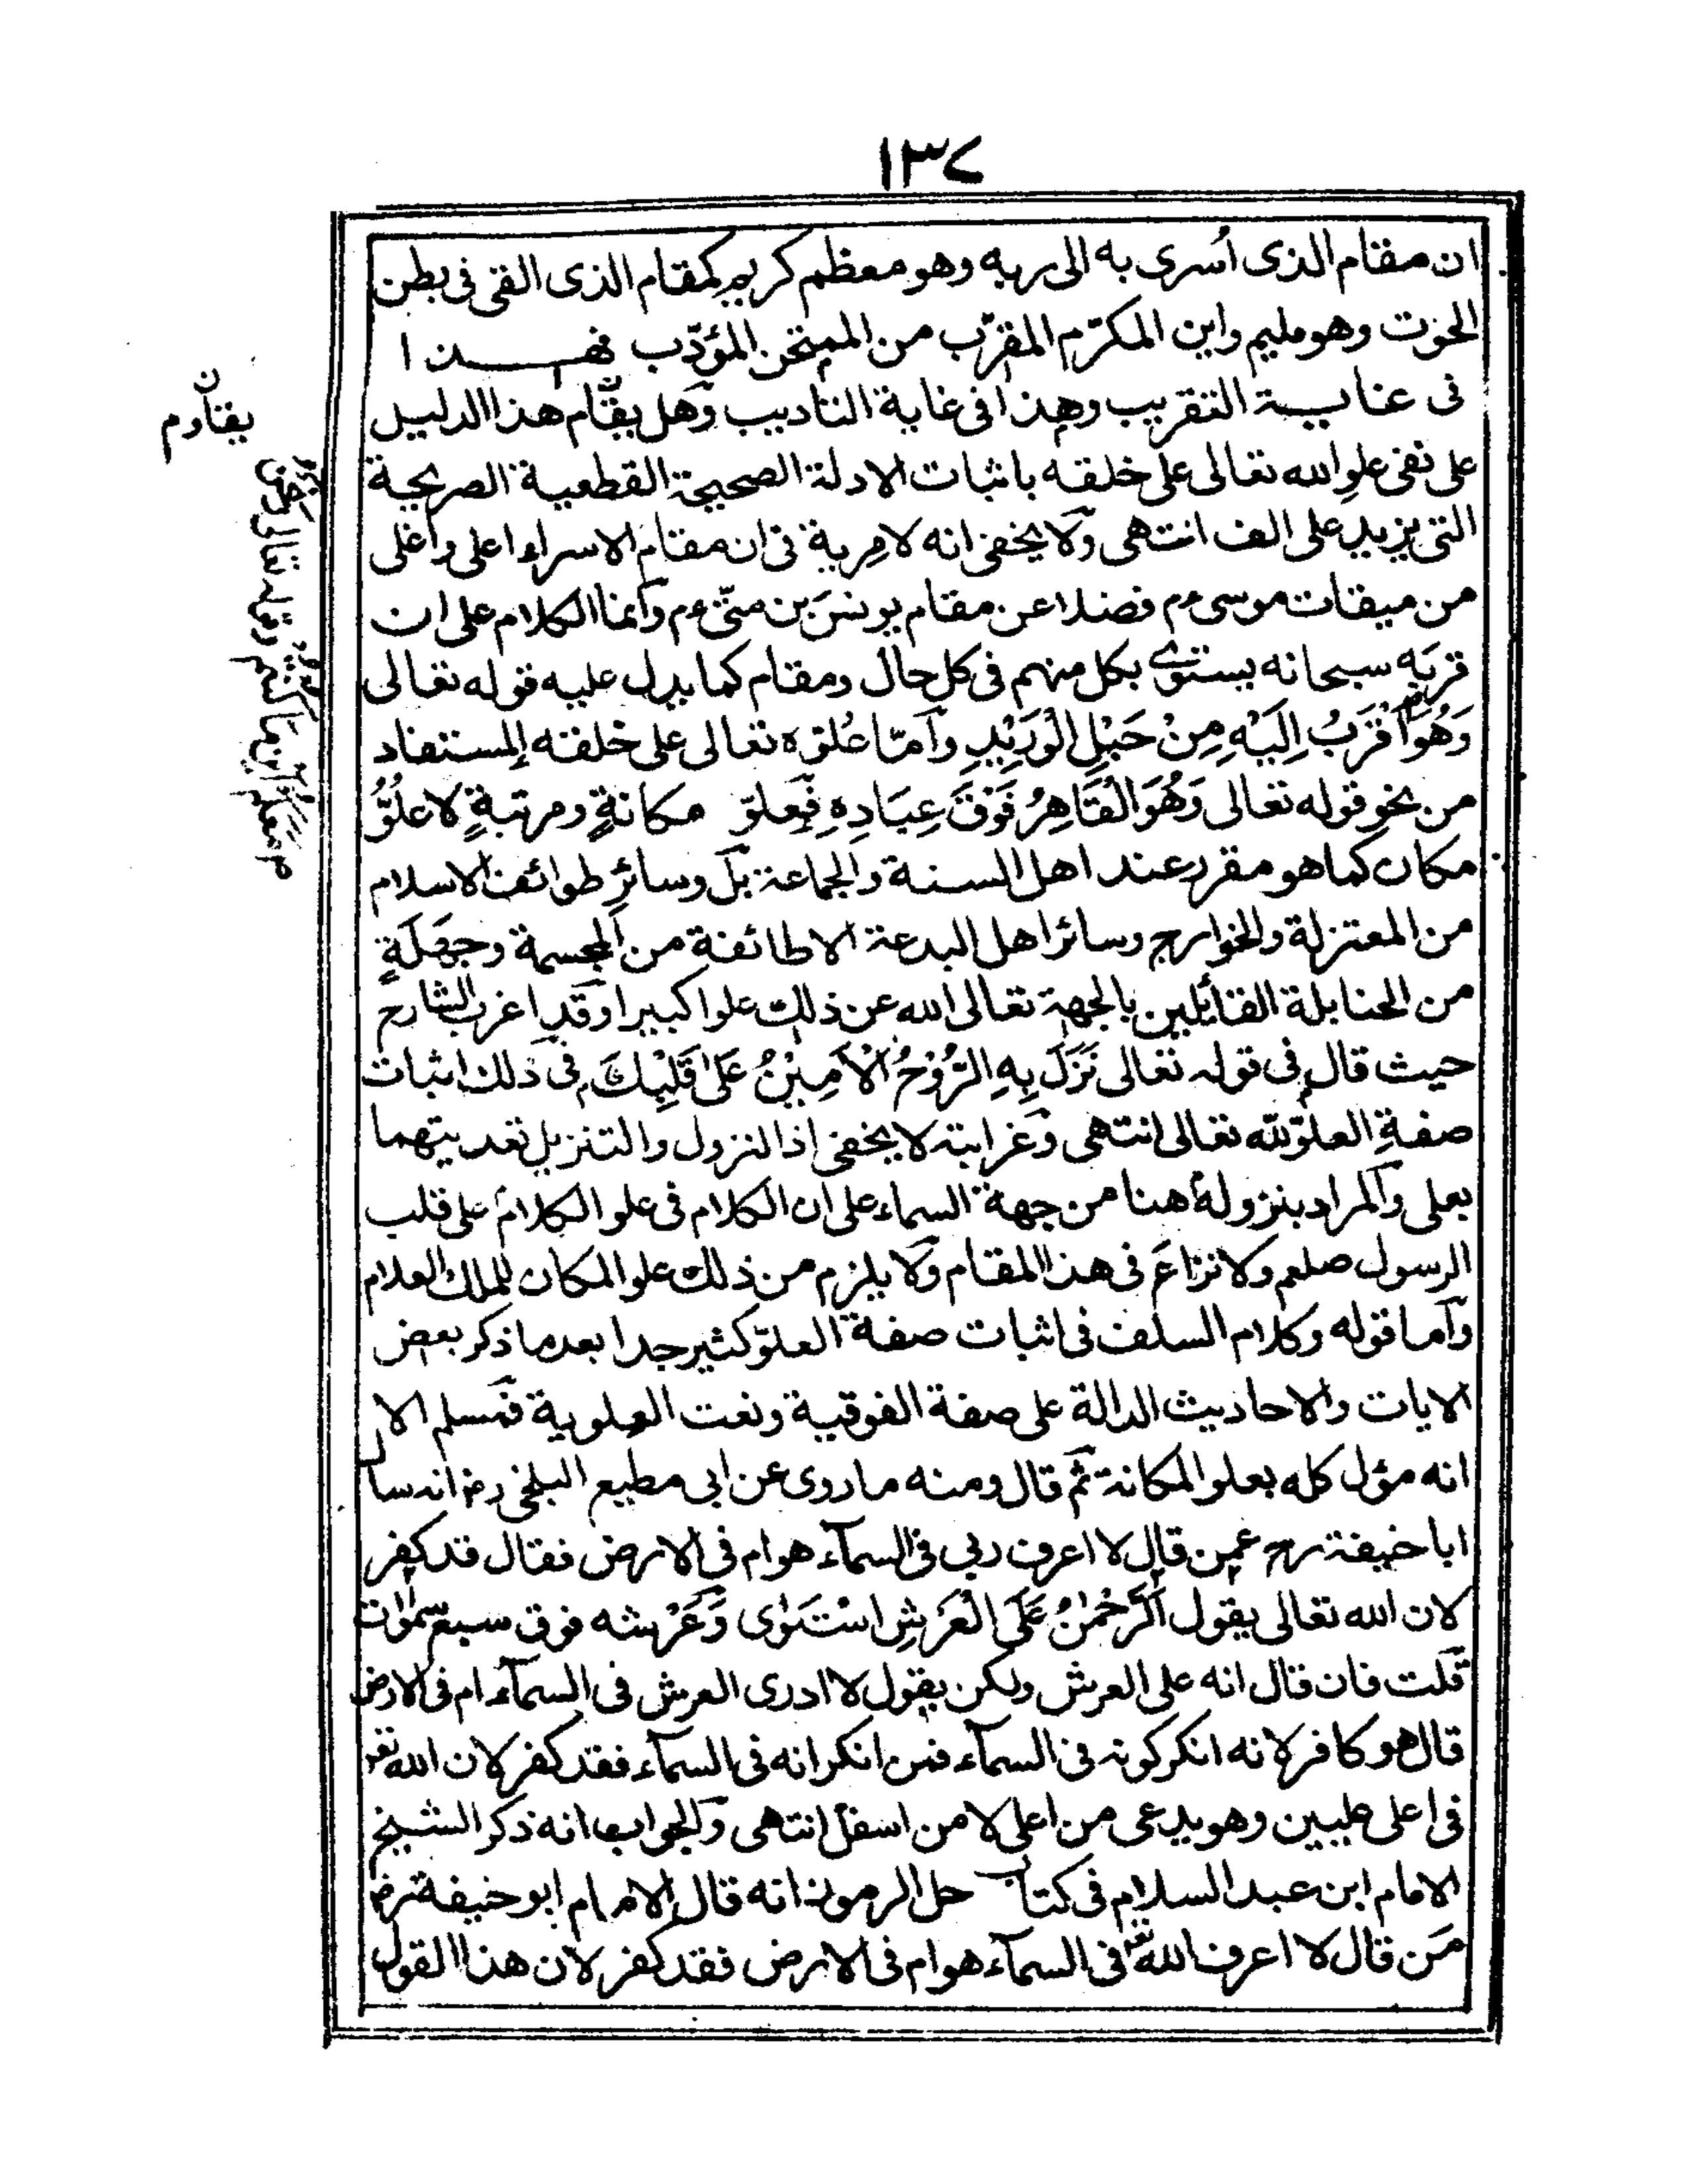 ١٣٧
ان مقام الذى اُسرى به الى ربه وهو معظم كريم كمقام الذى القى فى بطن
الحوت وهو مليم واين المكرّم المقرّب من الممتحن المؤدّب فهــذا
فى غايــة التقريب وهذا فى غاية التاديب وهل يقّام هذا الدليل
على نفى علو الله تعالى على خلقه باثبات الادلة الصحيحة القطعية الصريحة
التى يزيد على الف انتهى ولا يخفى انه لا مرية فى ان مقام الاسراء اعلى واغلى
من ميقات موسى عم فضلا عن مقام يونس بن متّى عم وانما الكلام على ان
قربه سبحانه يستوى بكل منهم فى كل حال ومقام كما يدل عليه قوله تعالى
وَهُوَ اَقْرَبُ اِلَيْهِ مِنْ حَبْلِ الْوَرِيْدِ وامّا علوّه تعالى على خلقه المستفاد
من نحو قوله تعالى وَهُوَ الْقَاهِرُ فَوْقَ عِبَادِهِ فعلوّ مكانةٍ ومرتبةٍ لا علوُّ
مكان كما هو مقرر عند اهل السنة والجماعة بل وسائر طوائف الاسلام
من المعتزلة والخوارج وسائر اهل البدعة الا طائفة من المجسمة وجهلةٍ
من الحنابلة القائلين بالجهة تعالى الله عن ذلك علوا كبيرا وقد اغرب الشارح
حيث قال فى قوله تعالى نَزَلَ بِهِ الرُّوْحُ الْاَمِيْنُ عَلٰى قَلْبِكَ فى ذلك اثبات
صفةِ العلوّ لله تعالى انتهى وغرابته لا يخفى اذ النزول والتنزيل تعديتهما
بعلى والمراد بنزوله هنا من جهة السماء على ان الكلام فى علو الكلام على قلب
الرسول صلعم ولا نزاعَ فى هذا المقام ولا يلزم من ذلك علو المكان للملك العلام
واما قوله وكلام السلف فى اثبات صفة العلوّ كثير جدا بعد ما ذكر بعض
الايات والاحاديث الدالة على صفة الفوقية ونعت العلوية فمسلم الا
انه مؤل كله بعلو المكانة ثم قال ومنه ما روى عن ابى مطيع البلخى رض انه سال
ابا حنيفة رح عمن قال لا اعرف ربى فى السمآء هو ام فى الارض فقال قد كفر
لان الله تعالى يقول اَلرَّحْمٰنُ عَلَى الْعَرْشِ اسْتَوٰى وَعَرْشه فوق سبع سمٰوات
قلت فان قال انه على العرش ولكن يقول لا ادرى العرش فى السمآء ام فى الارض
قال هو كافر لانه انكر كونه فى السمآء فمن انكر انه فى السمآء فقد كفر لان الله تعـ
فى اعلى عليين وهو يدعى من اعلى لا من اسفل انتهى والجواب انه ذكر الشيخ
الامام ابن عبد السلام فى كتاب حل الرموز انه قال الامام ابو حنيفة رض
من قال لا اعرف الله تعـ فى السمآء هو ام فى الارض فقد كفر لان هذا القول
ن
يقاوم